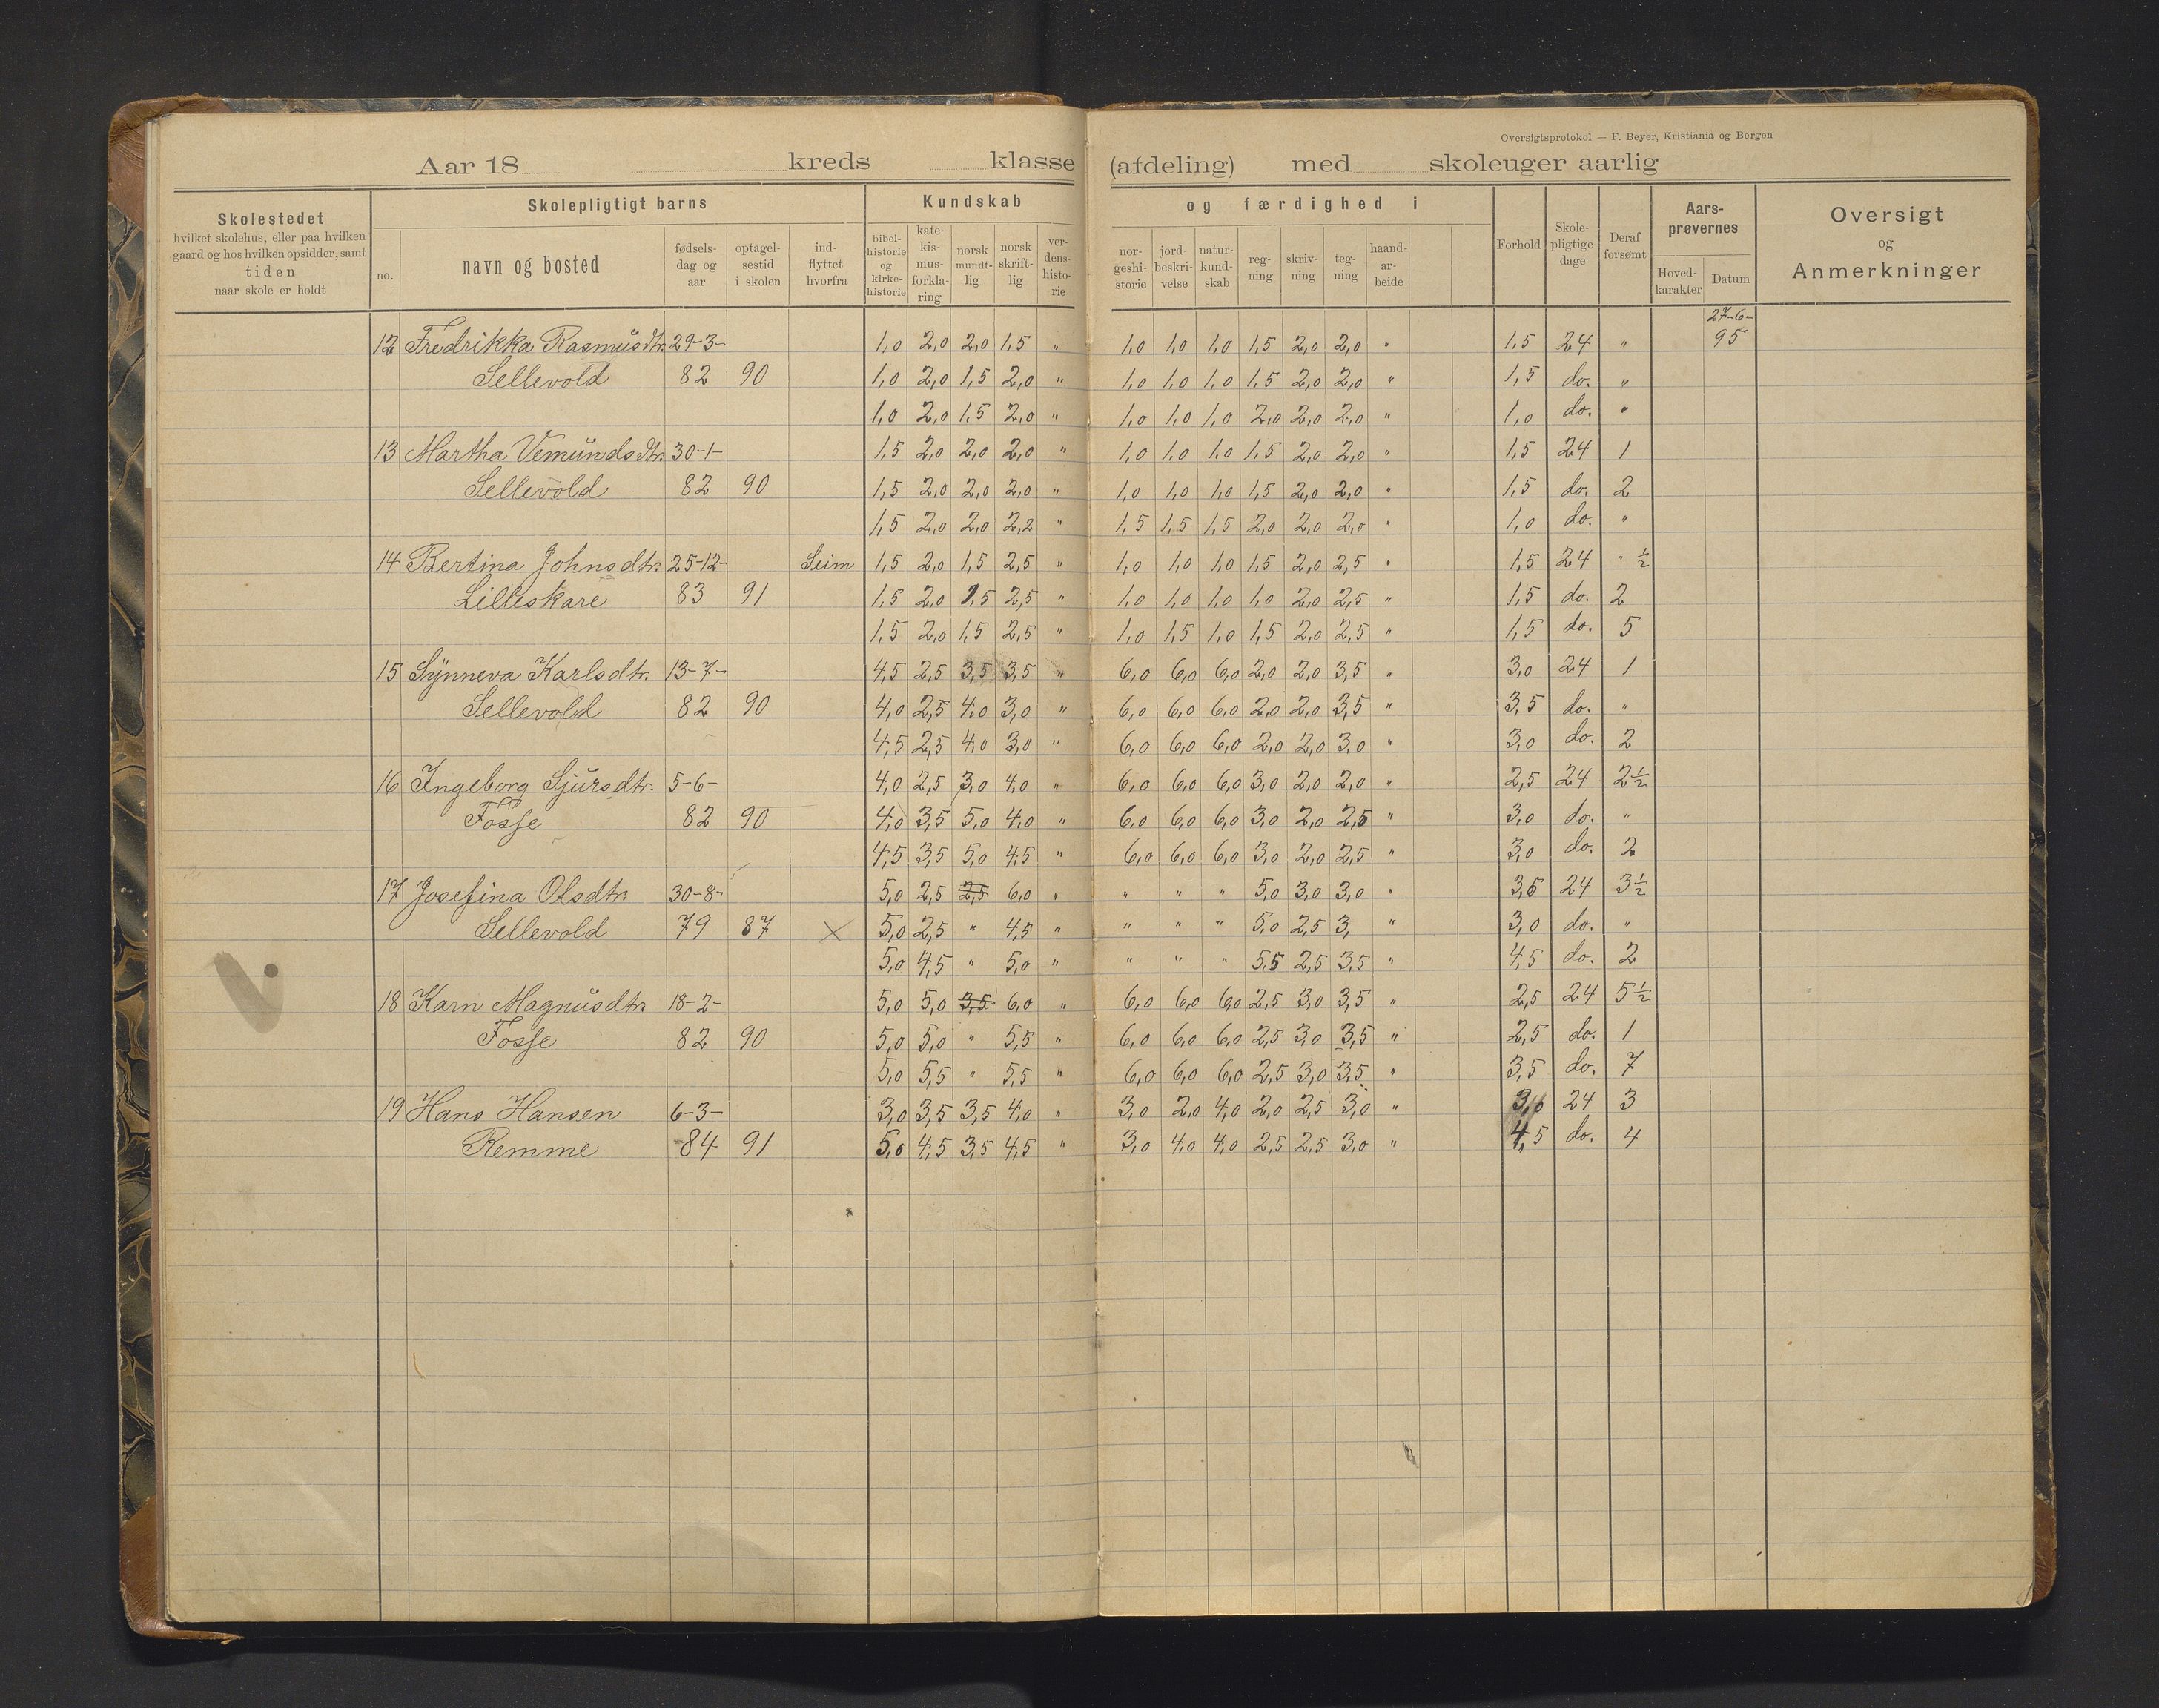 Oversigtsprotokol — F. Beyer, Kristiania og Bergen
Aar 18 kreds klasse (afdeling) med skoleuger aarlig
Skolestedet
hvilket skolehus, eller paa hvilken
gaard og hos hvilken opsidder, samt
tiden
naar skole er holdt
Skolepligtigt barns
no.
navn og bosted
fødsels-
dag og
aar
optagel-
sestid
i skolen
ind-
flyttet
hvorfra
Kundskab og færdighed i
bibel-
historie
og
kirke-
historie
kate-
kis-
mus-
forkla-
ring
norsk
mundt-
lig
norsk
skrift-
lig
ver-
dens-
histo-
rie
nor-
geshi-
storie
jord-
beskri-
velse
natur-
kund-
skab
reg-
ning
skriv-
ning
teg-
ning
haand-
ar-
beide
Forhold
Skole-
pligtige
dage
Deraf
forsømt
Aars-
prøvernes
Hoved-
karakter
Datum
Oversigt
og
Anmerkninger
27-6-
12 Fredrikka Rasmusdtr. 29-3- 1,0 2,0 2,0 1,5 " 1,0 1,0 1,0 1,5 2,0 2,0 " 1,5 24 " 95
Sellevold 82 90 1,0 2,0 1,5 2,0 " 1,0 1,0 1,0 1,5 2,0 2,0 " 1,5 do. "
1,0 2,0 1,5 2,0 " 1,0 1,0 1,0 2,0 2,0 2,0 " 1,0 do. "
13 Martha Vemundsdtr. 30-1- 1,5 2,0 2,0 2,0 " 1,0 1,0 1,0 1,5 2,0 2,0 " 1,5 24 1
Sellevold 82 90 1,5 2,0 2,0 2,0 " 1,0 1,0 1,0 1,5 2,0 2,0 " 1,5 do. 2
1,5 2,0 2,0 2,2 " 1,5 1,5 1,5 2,0 2,0 2,0 " 1,0 do. "
14 Bertina Johnsdtr. 25-12- Seim 1,5 2,0 1,5 2,5 " 1,0 1,0 1,0 1,5 2,0 2,5 " 1,5 24 " ½
Lilleskare 83 91 1,5 2,0 1,5 2,5 " 1,0 1,0 1,0 1,0 2,0 2,5 " 1,5 do. 2
1,5 2,0 1,5 2,5 " 1,0 1,5 1,0 1,5 2,0 2,5 " 1,5 do. 5
15 Synneva Karlsdtr. 13-7- 4,5 2,5 3,5 3,5 " 6,0 6,0 6,0 2,0 2,0 3,5 " 3,0 24 1
Sellevold 82 90 4,0 2,5 4,0 3,0 " 6,0 6,0 6,0 2,0 2,0 3,5 " 3,5 do. "
4,5 2,5 4,0 3,0 " 6,0 6,0 6,0 2,0 2,0 3,0 " 3,0 do. 2
16 Ingeborg Sjursdtr. 5-6- 4,0 2,5 3,0 4,0 " 6,0 6,0 6,0 3,0 2,0 2,0 " 2,5 24 2½
Fosse 82 90 4,0 3,5 5,0 4,0 " 6,0 6,0 6,0 3,0 2,0 2,5 " 3,0 do. "
4,5 3,5 5,0 4,5 " 6,0 6,0 6,0 3,0 2,0 2,5 " 3,0 do. 2
17 Josefina Olsdtr. 30-8- 5,0 2,5 2,5 6,0 " " " " 5,0 3,0 3,0 " 3,5 24 3½
Sellevold 79 87 × 5,0 2,5 " 4,5 " " " " 5,0 2,5 3, " 3,0 do. "
5,0 4,5 " 5,0 " " " " 5,5 2,5 3,5 " 4,5 do. 2
18 Karn Magnusdtr 18-2- 5,0 5,0 3,5 6,0 " 6,0 6,0 6,0 2,5 3,0 3,5 " 2,5 24 5½
Fosse 82 90 5,0 5,0 " 5,5 " 6,0 6,0 6,0 2,5 3,0 3,5 " 2,5 do. 1
5,0 5,5 " 5,5 " 6,0 6,0 6,0 2,5 3,0 3,5 " 3,5 do. 7
19 Hans Hansen 6-3- 3,0 3,5 3,5 4,0 " 3,0 2,0 4,0 2,0 2,5 3,0 " 3,0 24 3
Remme 84 91 5,0 4,5 3,5 4,5 " 3,0 4,0 4,0 2,5 2,5 3,0 " 4,5 do. 4